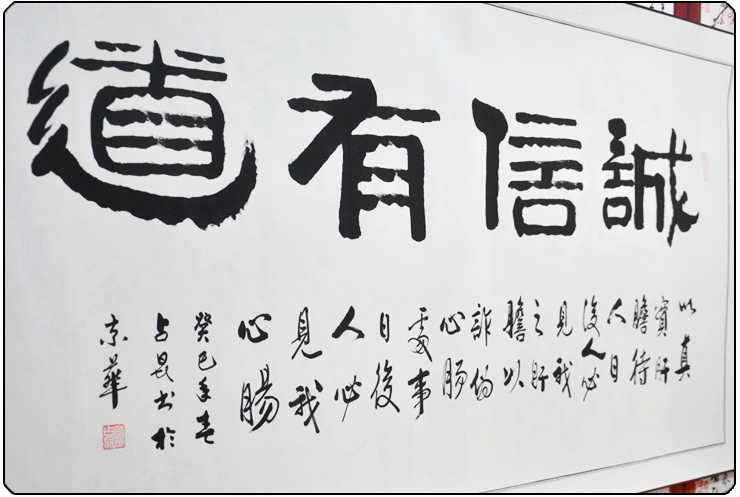 誠信有道
以真
實肝
膽待
人日
後人必
見我
之肝
膽以
詐偽
心腸
處事
日後
人必
見我
心腸
癸巳年春
占昆书於
京華